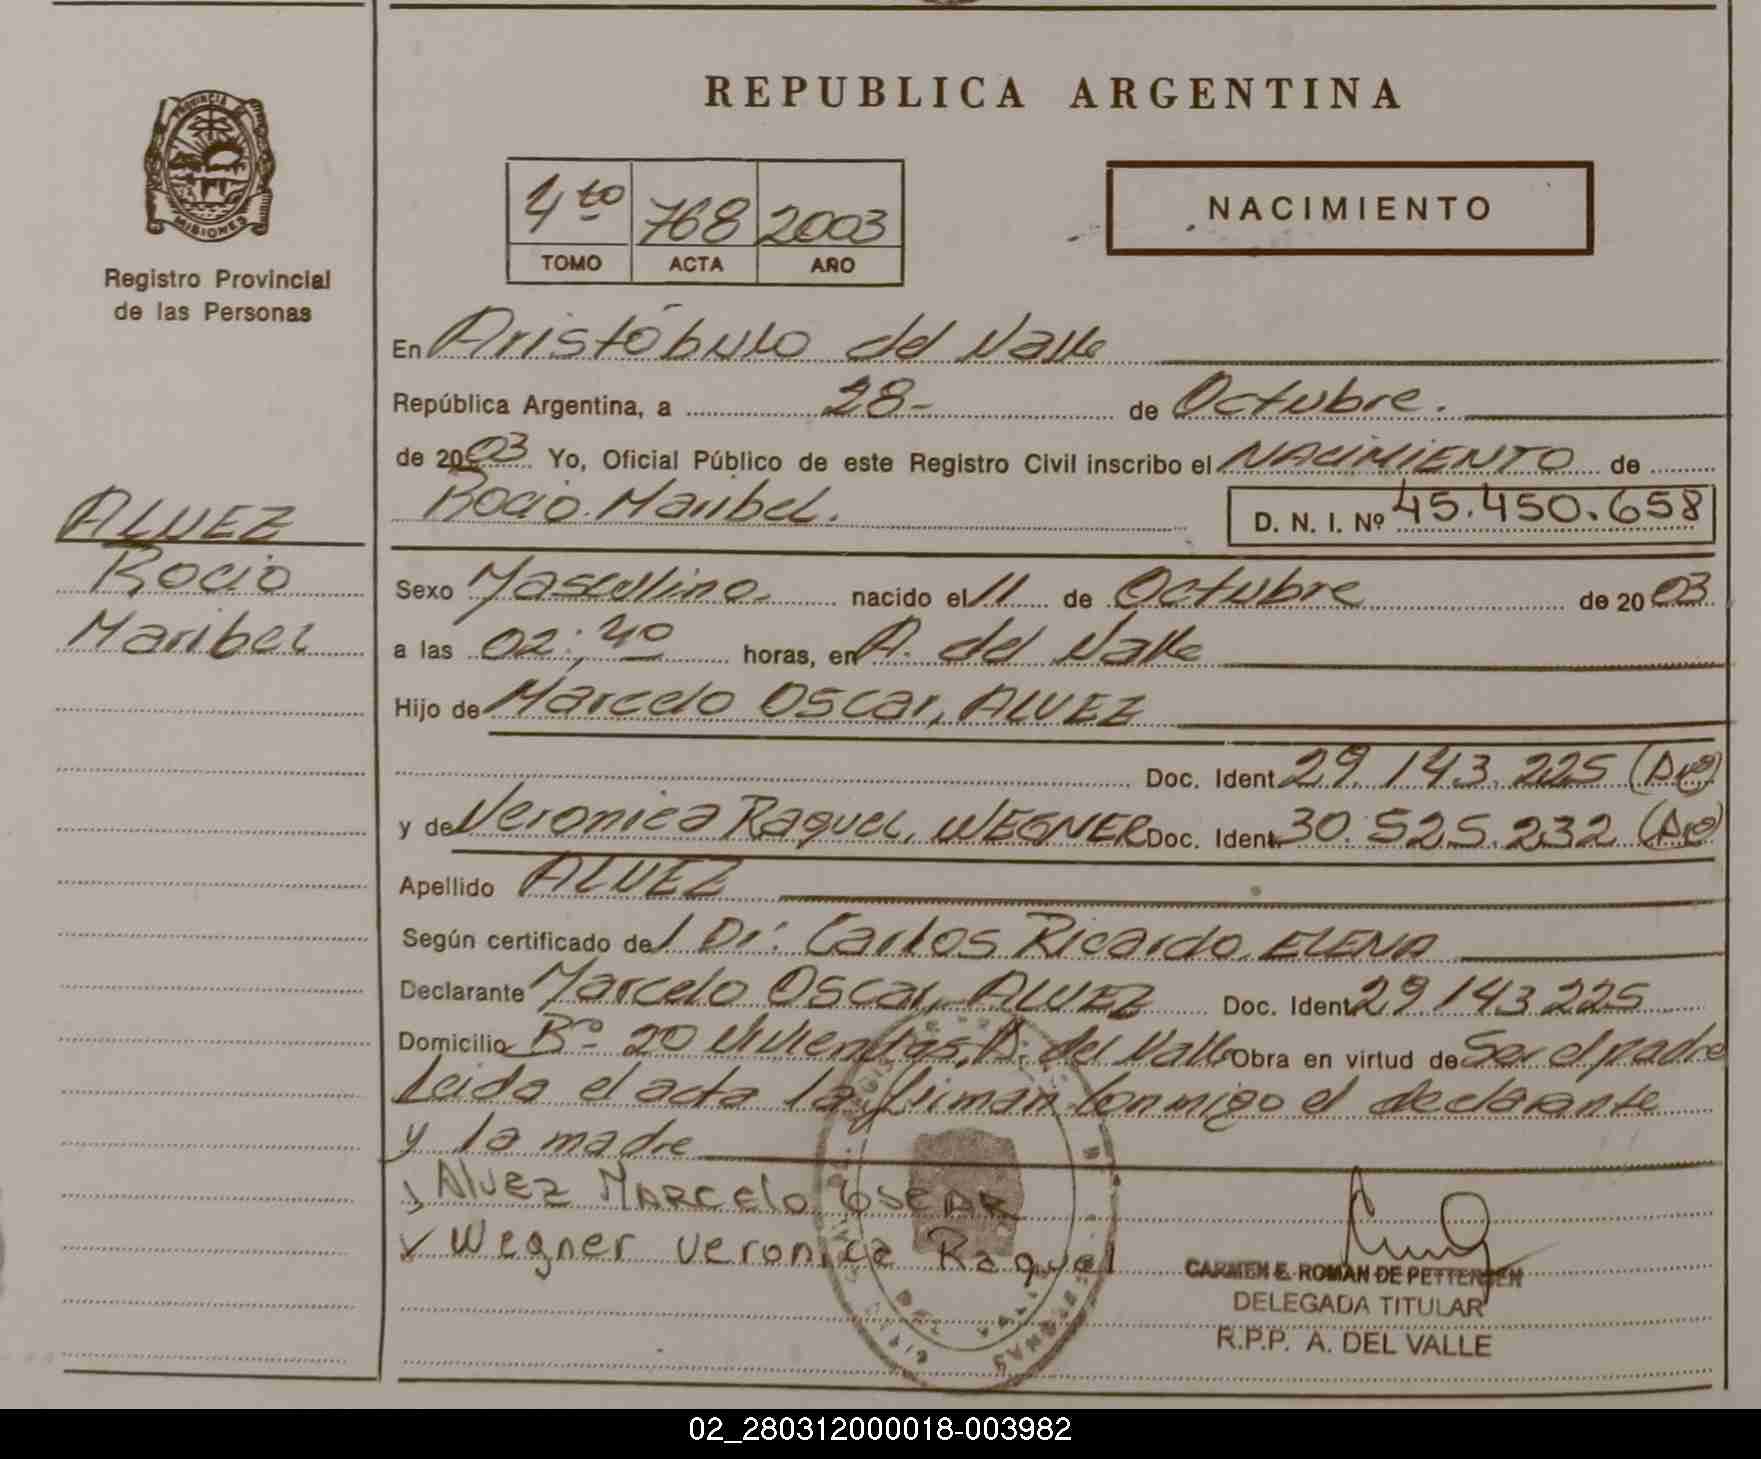 REPUBLICA ARGENTINA
PROVINCIA DE
MISIONES
Registro Provincial
de las Personas
4to 768 2003
TOMO ACTA AÑO
NACIMIENTO
En Aristóbulo del Valle
República Argentina, a 28- de Octubre.
de 2003 Yo, Oficial Público de este Registro Civil inscribo el NACIMIENTO de
Rocio Maribel.
D. N. I. Nº 45.450.658
ALVEZ
Rocio
Maribel
Sexo Masculino. nacido el 11 de Octubre de 2003
a las 02:40 horas, en A. del Valle
Hijo de Marcelo Oscar, ALVEZ
Doc. Ident. 29.143.225
y de Veronica Raquel, WEGNER Doc. Ident. 30.525.232
Apellido ALVEZ
Según certificado del Dr. Carlos Ricardo ELENA
Declarante Marcelo Oscar, ALVEZ Doc. Ident. 29 143 225
Domicilio Bº 20 Viviendas, A. del Valle Obra en virtud de Ser el padre
Leida el acta la firman conmigo el declarante
y la madre
Alvez MARCELO OSCAR
Wegner Veronica Raquel
CARMEN E. ROMAN DE PETTERSEN
DELEGADA TITULAR
R.P.P. A. DEL VALLE
02_280312000018-003982